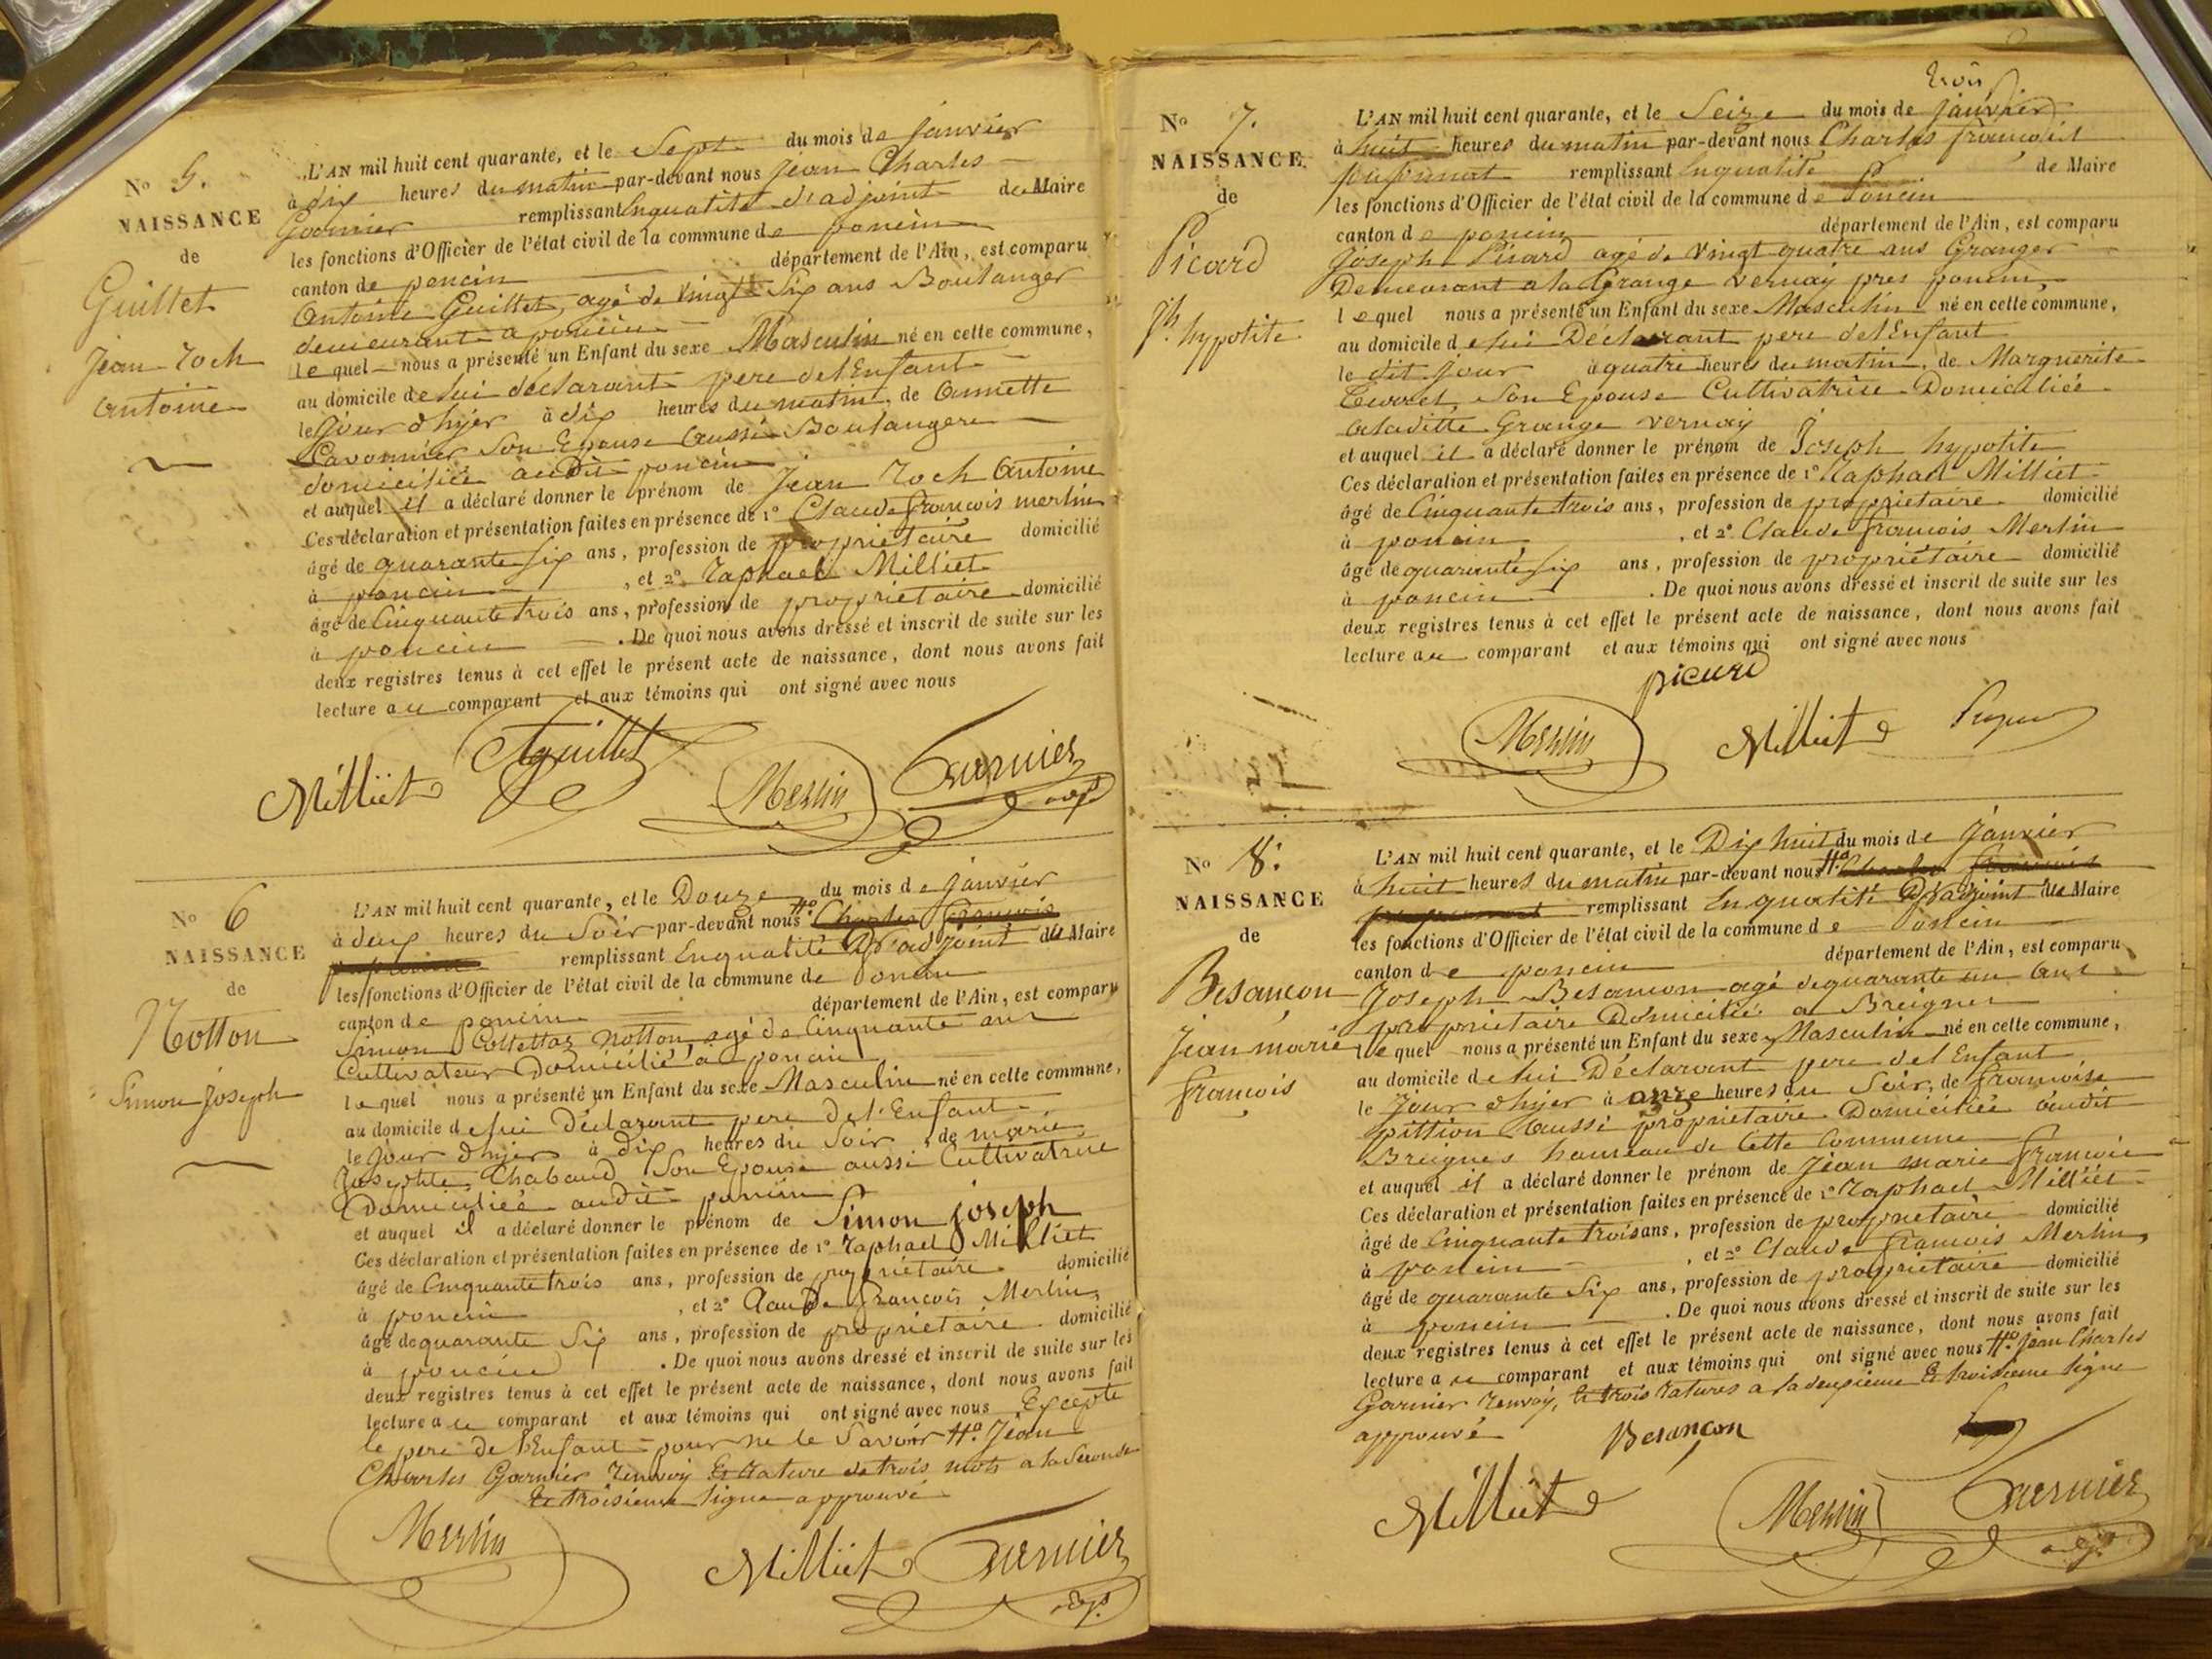 N° 5.
NAISSANCE
de
Guillet
Jean Roch
antoine
L'AN mil huit cent quarante, et le Sept du mois de janvier
à dix heures du matin par-devant nous Jean Charles
Garnier remplissant Enqualité d'adjoint de Maire
les fonctions d'Officier de l'état civil de la commune de poncin
canton de poncin département de l'Ain, est comparu
antoine Guillet, agé de vingt Six ans Boulanger
demeurant a poncin
lequel nous a présenté un Enfant du sexe Masculin né en cette commune,
au domicile de lui déclarant pere del'Enfant
le jour d'hyer à dix heures du matin, de annette
Son Epouse aussi Boulangere
domiciliée audit poncin
et auquel il a déclaré donner le prénom de Jean Roch antoine
Ces déclaration et présentation faites en présence de 1° Claude francois merlin
âgé de quarante six ans, profession de propriétaire domicilié
à poncin, et 2° Raphael Milliet
âgé de Cinquante trois ans, profession de propriétaire domicilié
à poncin. De quoi nous avons dressé et inscrit de suite sur les
deux registres tenus à cet effet le présent acte de naissance, dont nous avons fait
lecture au comparant et aux témoins qui ont signé avec nous
guillet
Milliet Merlin Garnier
adjt
N° 6
NAISSANCE
de
Notton
Simon Joseph
L'AN mil huit cent quarante, et le Douze du mois de janvier
à deux heures du Soir par-devant nous Charles francois
remplissant Enqualité D'adjoint du Maire
les fonctions d'Officier de l'état civil de la commune de poncin
canton de poncin département de l'Ain, est comparu
Simon Collettaz Notton agé de Cinquante ans
Cultivateur Domicilié à poncin
lequel nous a présenté un Enfant du sexe Masculin né en cette commune,
au domicile de lui Déclarant pere del'Enfant
le jour d'hyer à dix heures du Soir, de marie
Josephte Chaband Son Epouse aussi Cultivatrice
Domiciliée audit poncin
et auquel il a déclaré donner le prénom de Simon joseph
Ces déclaration et présentation faites en présence de 1° Raphael Milliet
âgé de Cinquante trois ans, profession de propriétaire domicilié
à poncin, et 2° Claude francois Merlin,
âgé de quarante Six ans, profession de propriétaire domicilié
à poncin. De quoi nous avons dressé et inscrit de suite sur les
deux registres tenus à cet effet le présent acte de naissance, dont nous avons fait
lecture au comparant et aux témoins qui ont signé avec nous Excepté
le pere de l'Enfant pour ne le Savoir #° Jean
Charles Garnier Renvoy Et Rature de trois mots a la Seconde
Et troisieme ligne approuvé
Merlin Milliet Garnier
adjt
N° 7.
NAISSANCE
de
Picard
Jh. hypolite
trois
L'AN mil huit cent quarante, et le Seize du mois de janvier
à huit heures du matin par-devant nous Charles francois
remplissant Enqualité de Maire
les fonctions d'Officier de l'état civil de la commune de Poncin
canton de poncin département de l'Ain, est comparu
Joseph Picard agé de vingt quatre ans Granger
Demeurant a la Grange vernay pres poncin,
lequel nous a présenté un Enfant du sexe Masculin né en cette commune,
au domicile de lui Déclarant pere del'Enfant
le dit jour à quatre heures du matin, de Marguerite
Son Epouse Cultivatrice Domiciliée
aladitte Grange vernay
et auquel il a déclaré donner le prénom de Joseph hypolite
Ces déclaration et présentation faites en présence de 1° Raphael Milliet
âgé de Cinquante trois ans, profession de propriétaire domicilié
à poncin, et 2° Claude francois Merlin
âgé de quarante six ans, profession de propriétaire domicilié
à poncin. De quoi nous avons dressé et inscrit de suite sur les
deux registres tenus à cet effet le présent acte de naissance, dont nous avons fait
lecture au comparant et aux témoins qui ont signé avec nous
picard
Merlin Milliet
N° 8.
NAISSANCE
de
Besançon
Jean marie
françois
L'AN mil huit cent quarante, et le Dix huit du mois de janvier
à huit heures du matin par-devant nous #° Charles francois
remplissant Enqualité D'adjoint du Maire
les fonctions d'Officier de l'état civil de la commune de Poncin
canton de poncin département de l'Ain, est comparu
Joseph Besancon agé de quarante un ans
propriétaire Domicilié a Breignes
lequel nous a présenté un Enfant du sexe Masculin né en cette commune,
au domicile de lui Déclarant pere del'Enfant
le jour d'hyer à onze heures du Soir, de francoise
pittion aussi propriétaire Domiciliée audit
Breignes hameau de Cette Commune
et auquel il a déclaré donner le prénom de Jean marie francois
Ces déclaration et présentation faites en présence de 1° Raphael Milliet
âgé de Cinquante trois ans, profession de propriétaire domicilié
à poncin, et 2° Claude francois Merlin,
âgé de quarante Six ans, profession de propriétaire domicilié
à poncin. De quoi nous avons dressé et inscrit de suite sur les
deux registres tenus à cet effet le présent acte de naissance, dont nous avons fait
lecture au comparant et aux témoins qui ont signé avec nous #° Jean Charles
Garnier Renvoy, Et trois Ratures a la deuxieme Et troisieme ligne
approuvé Besançon
Milliet Merlin Garnier
adjt